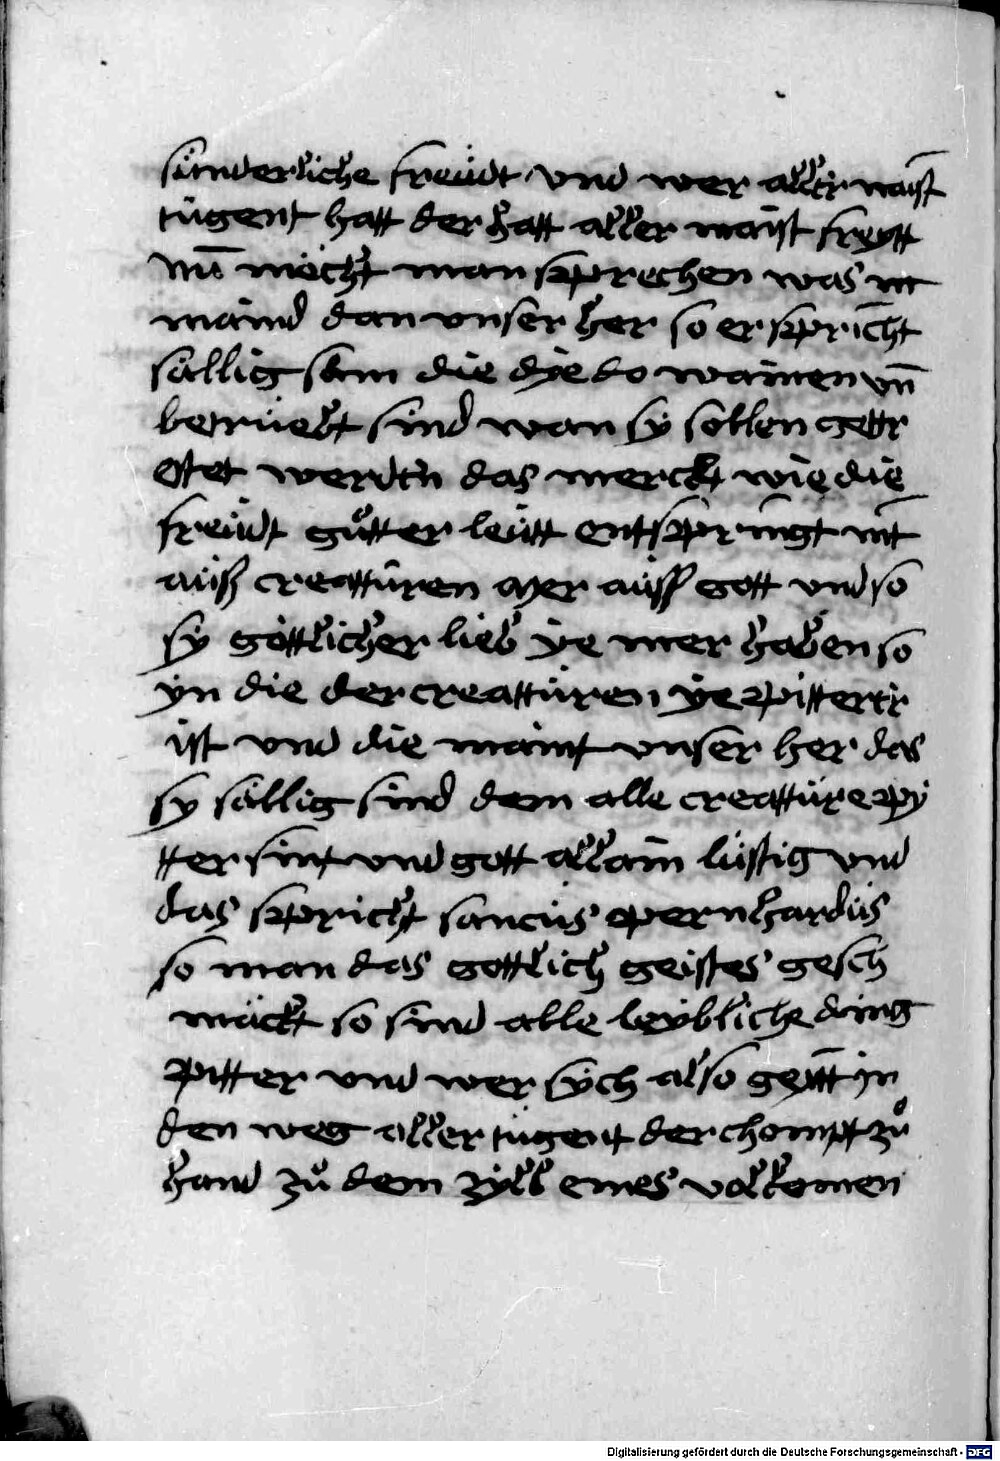 sünderliche freüdt vnd wer aller maist
tügent hatt der hatt aller maist freytt
Nu̅ möcht man sprechen was m
maind dan vnser her so er spricht
sällig sein die dye do wainen vn̅
betrüebt sind wan sy sollen gettr
östet werden das merckt wie die
freüdt gůtter leütt entspringt nit
aüß creattüren mer aüß gott vnd so
sy göttlicher lieb ye mer haben so
yn die der creattüren ye pitterer
ist vnd die maint vnser her das
sy sällig sind dem alle creattüre py
tter sint vnd gott allain lüstig vnd
das spricht sanctus pernhardus
so man das gottlich geistes gesch
mäckt so sind alle leyblich ding
pitter vnd wer sych also geytt in
den weg aller tügent der chompt zů
hand zů dem zyll eines vollomen
Digitalisierung gefördert durch die Deutsche Forschungsgemeinschaft - DFG